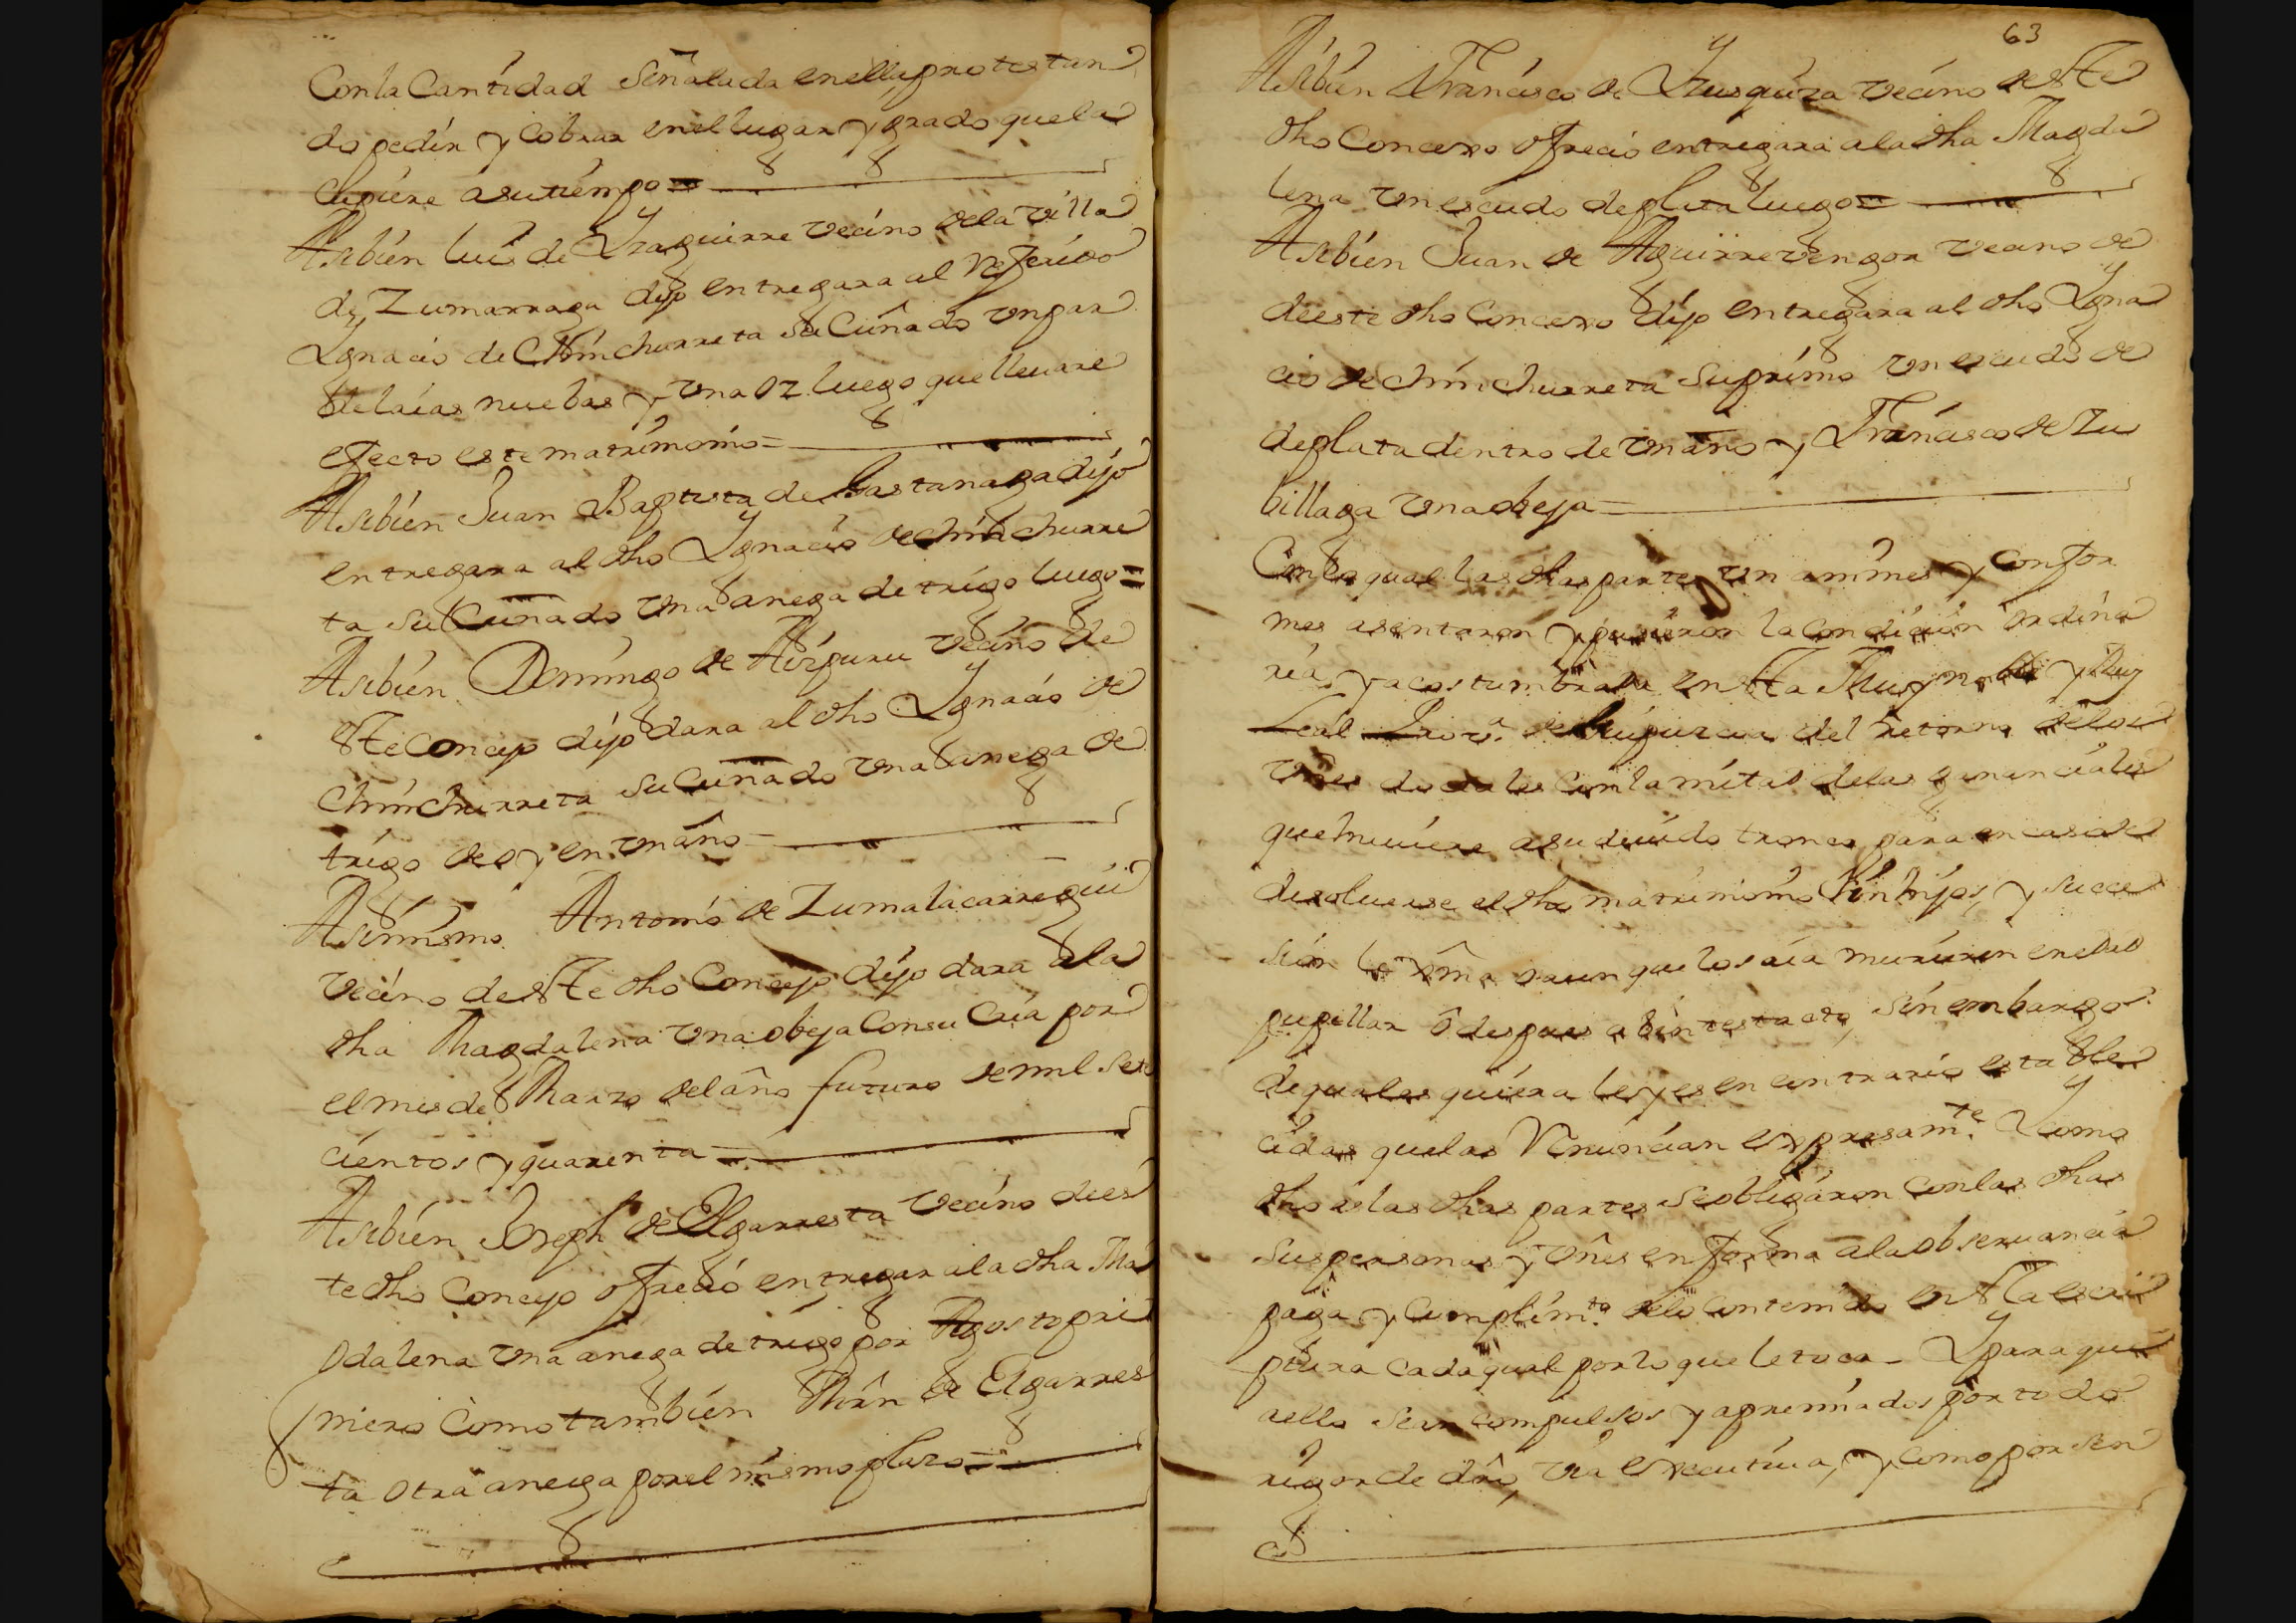 Con la Cantidad Señalada en ella, protestan
do pedir y Cobrar en el lugar y grado que la
Cupiere a su tiempo =
Asibien luis de Yzaguirre vecino dela villa
de Zumarraga dijo entregara al Referido
Ygnacio de Chinchurreta su Cuñado un par
de laias nuebas y una oz luego que lleuare
efecto este matrimonio =
Asibien Juan Baptista de Gastanaga dijo
entregara al dho Ygnacio de chinchurre
ta su Cuñado una anega de trigo luego =
Asibien Domingo de Aizpuru vecino de
ste Concejo dijo dara al dho Ygnacio de
Chinchurreta su Cuñado una anega de
trigo de oy en un año
Asimismo Antonio de Zumalacarregui
vecino de este dho Concejo dijo dara a la
dha Magdalena una obeja Con su Cria por
el mes de Marzo del año futuro de mil sete
cientos y quarenta
Asibien Joseph de Elgarresta vecino de es
te dho Concejo ofreció entregar a la dha Ma
gdalena una anega de trigo por Agosto pri
mero Como tambien Mrn de Elgarres
ta otra anega por el mismo plazo =
63
Asibien Francisco de Yrusquiza vecino de ste
dho Concejo ofrecio entregara a la dha Magda
lena un escudo de plata luego =
Asibien Juan de Aguirrevengoa vecino de
de este dho Concejo dijo entregara al dho Ygna
cio de chinchurreta su primo un escudo de
de plata dentro de un año y Francisco de Zu
billaga una obeja =
Con lo qual las dhas partes un animes y confor
mes asentaron y pusieron la condicion ordina
ria, y acostumbrada en sta Muy noble y Muy
Leal Prova. de Guipuzcoa del retorno de los
vnes dotales con la mitad delas gananciales
que huuiere a su deuido tronco para en caso de
disoluerse el dho matrimonio sin hijos, y succe
sion lexma o aunque los aia murieren en edad
pupillar o despues abintestato, sin embargo
de quales quiera leyes en contrario estable
cidas que las Renuncian expresamte. Y como
dho es las dhas partes se obligaron con las dhas
sus personas y vnes en forma a la obseruancia
paga y Cumplimto. de lo contenido en sta escri
ptura cada qual por lo que le toca - Y para que
a ello sean compulsos y apremiados por todo
rigor de dro, via executiua, y como por sen